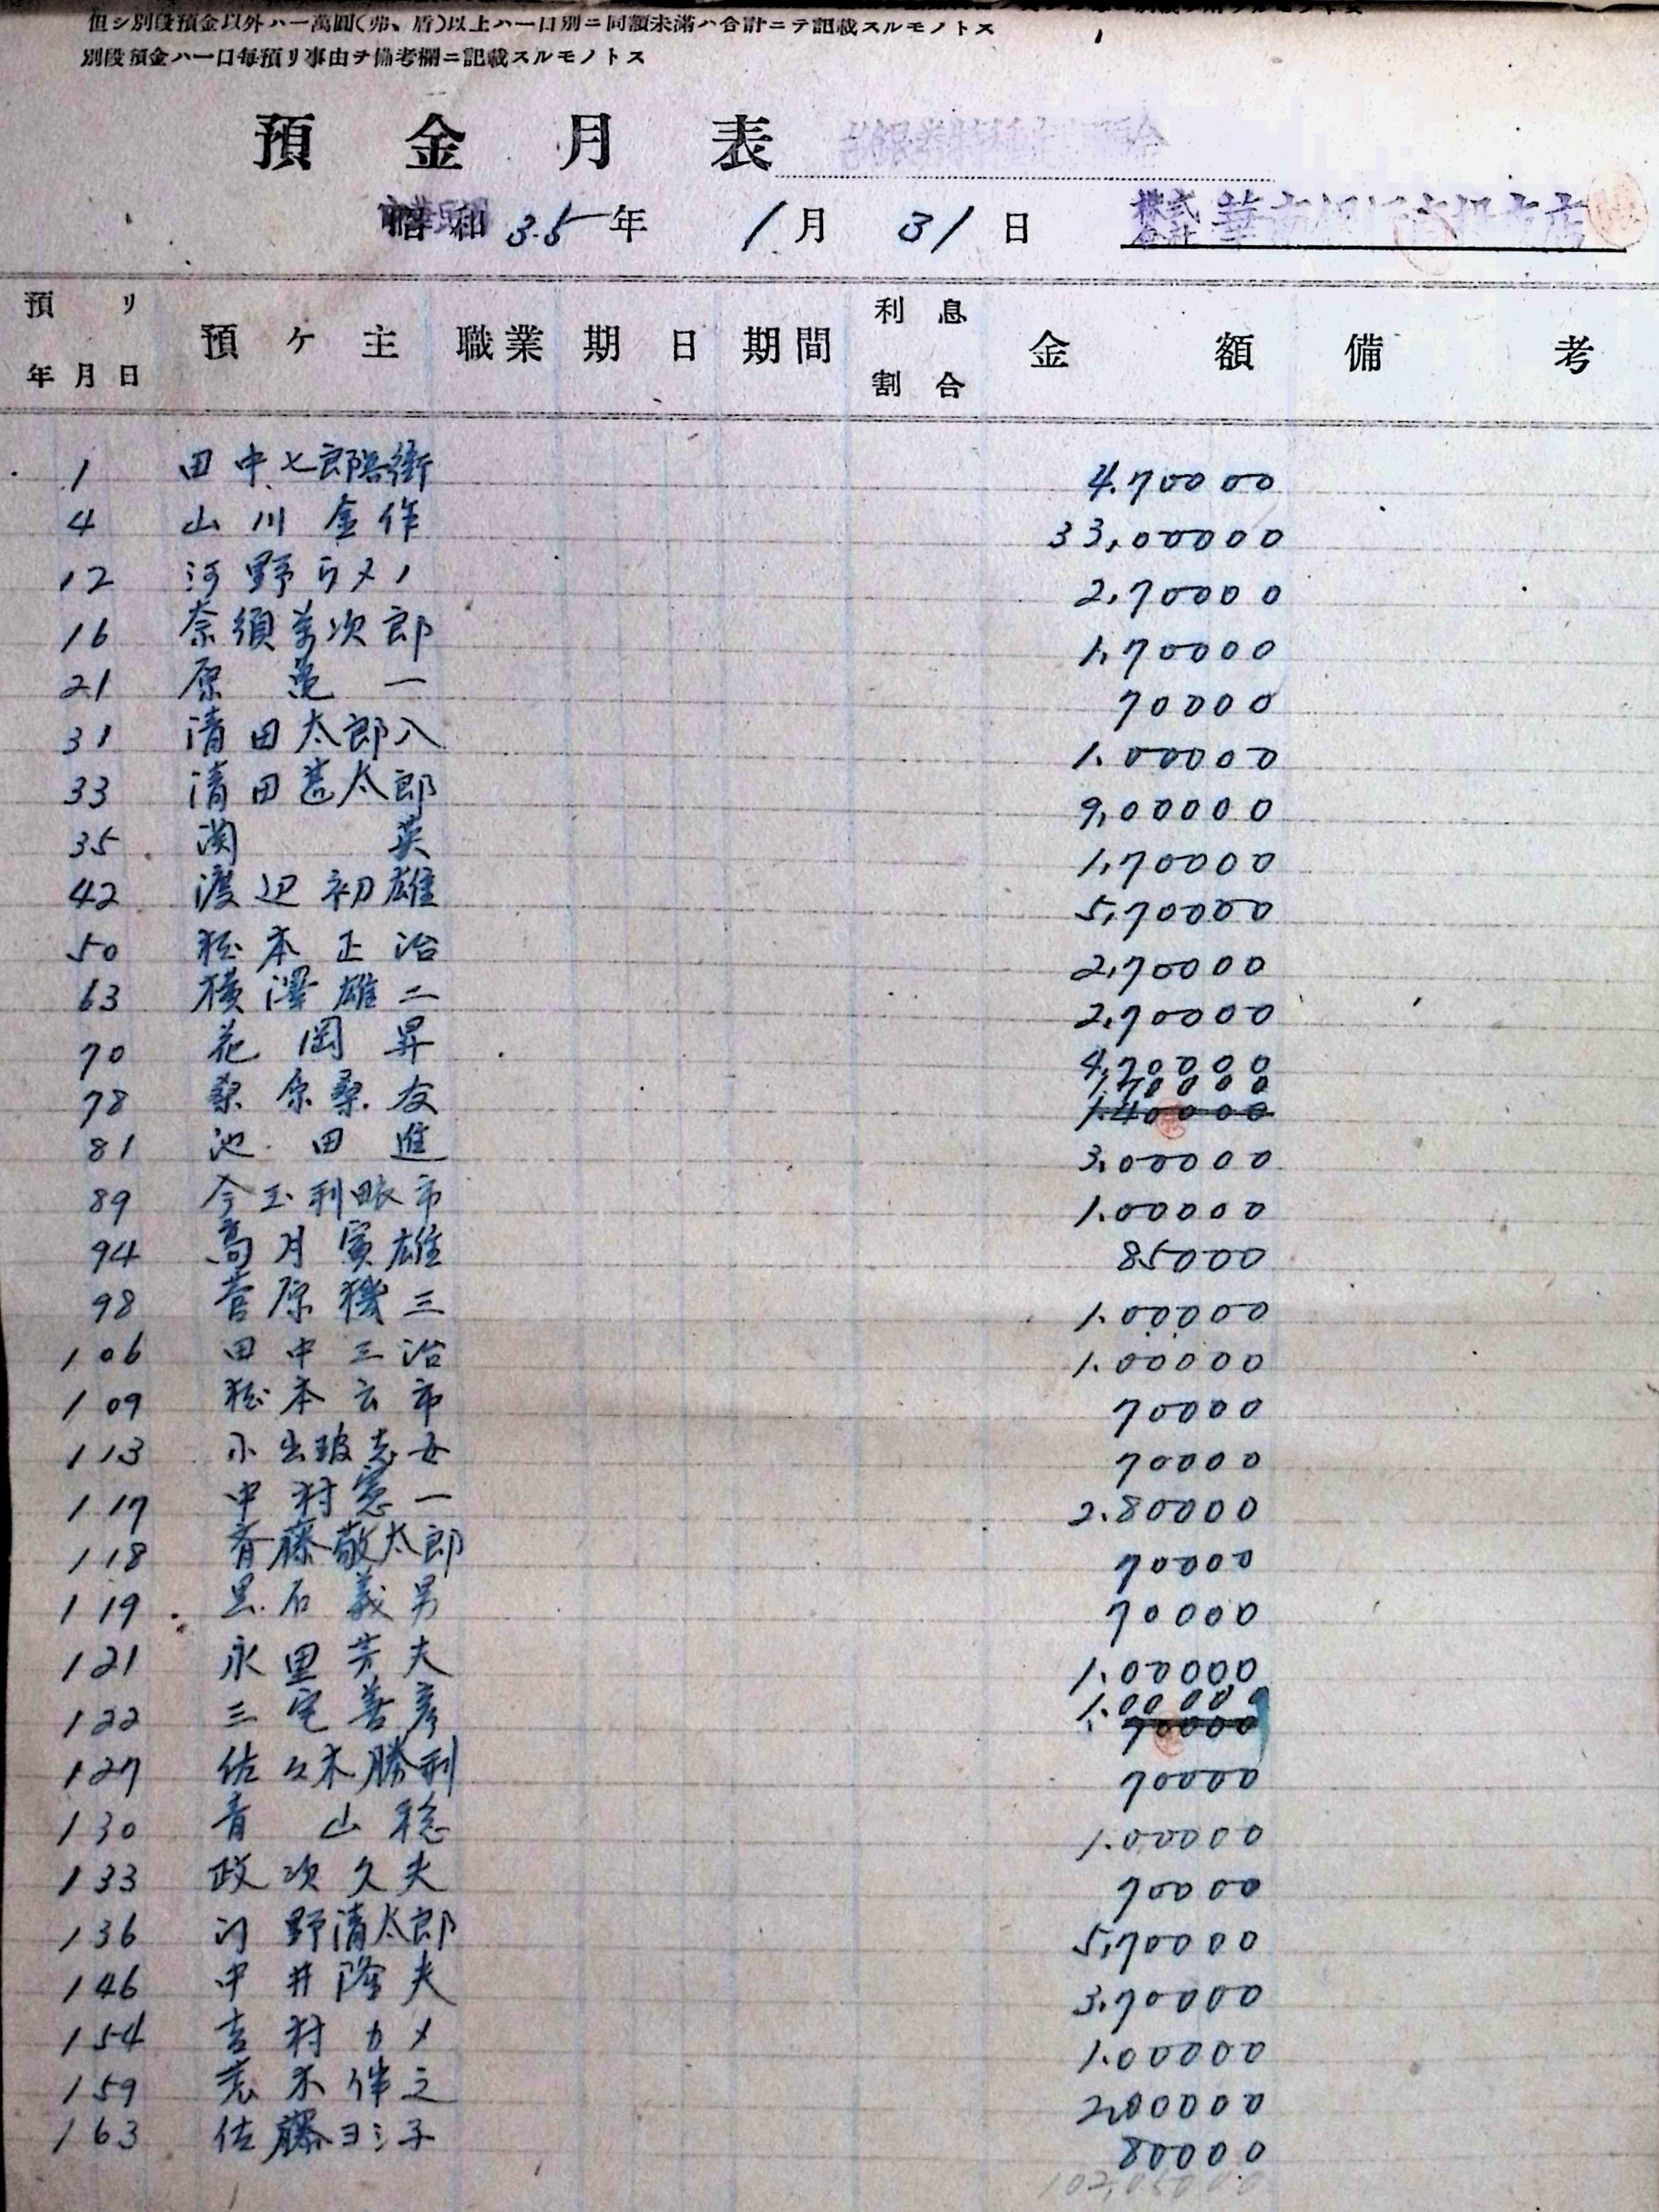 但シ別段預金以外ハ一萬圓(弗、盾)以上ハ一口別ニ同額未滿ハ合計ニテ記載スルモノトス
別段預金ハ一口每預リ事由ヲ備考欄ニ記載スルモノトス
預金月表
昭和 35年 1月 31日 株式會社
預リ年月日 預ケ主 職業 期日 期間 利息割合 金額 備考
1 田中七郎兵衛 4.70000
4 山川金作 33,00000
12 河野ラメノ 2,70000
16 奈須萬次郎 1,70000
21 原 一 70000
31 清田太郎八 1.00000
33 清田甚太郎 9,00000
35 関 英 1,70000
42 渡辺初雄 5,70000
50 松本正治 2,70000
63 横澤雄二 2,70000
70 花岡昇 4,70000
78 桑原桑友 1,70000 1.40000
81 池田進 3,00000
89 今玉利 市 1.00000
94 髙月寅雄 85000
98 菅原機三 1.00000
106 田中三治 1.00000
109 松本 市 70000
113 小出 志女 70000
117 中村憲一 2.80000
118 斉藤敬太郎 70000
119 黒石義男 70000
121 永里芳夫 1.00000
122 三宅善彦 1.00000 70000
127 佐々木勝利 70000
130 青山稔 1.00000
133 政次久夫 70000
136 河野清太郎 5,70000
146 中井隆夫 3,70000
154 吉村カメ 1.00000
159 木伴之 2,00000
163 佐藤ヨシ子 80000